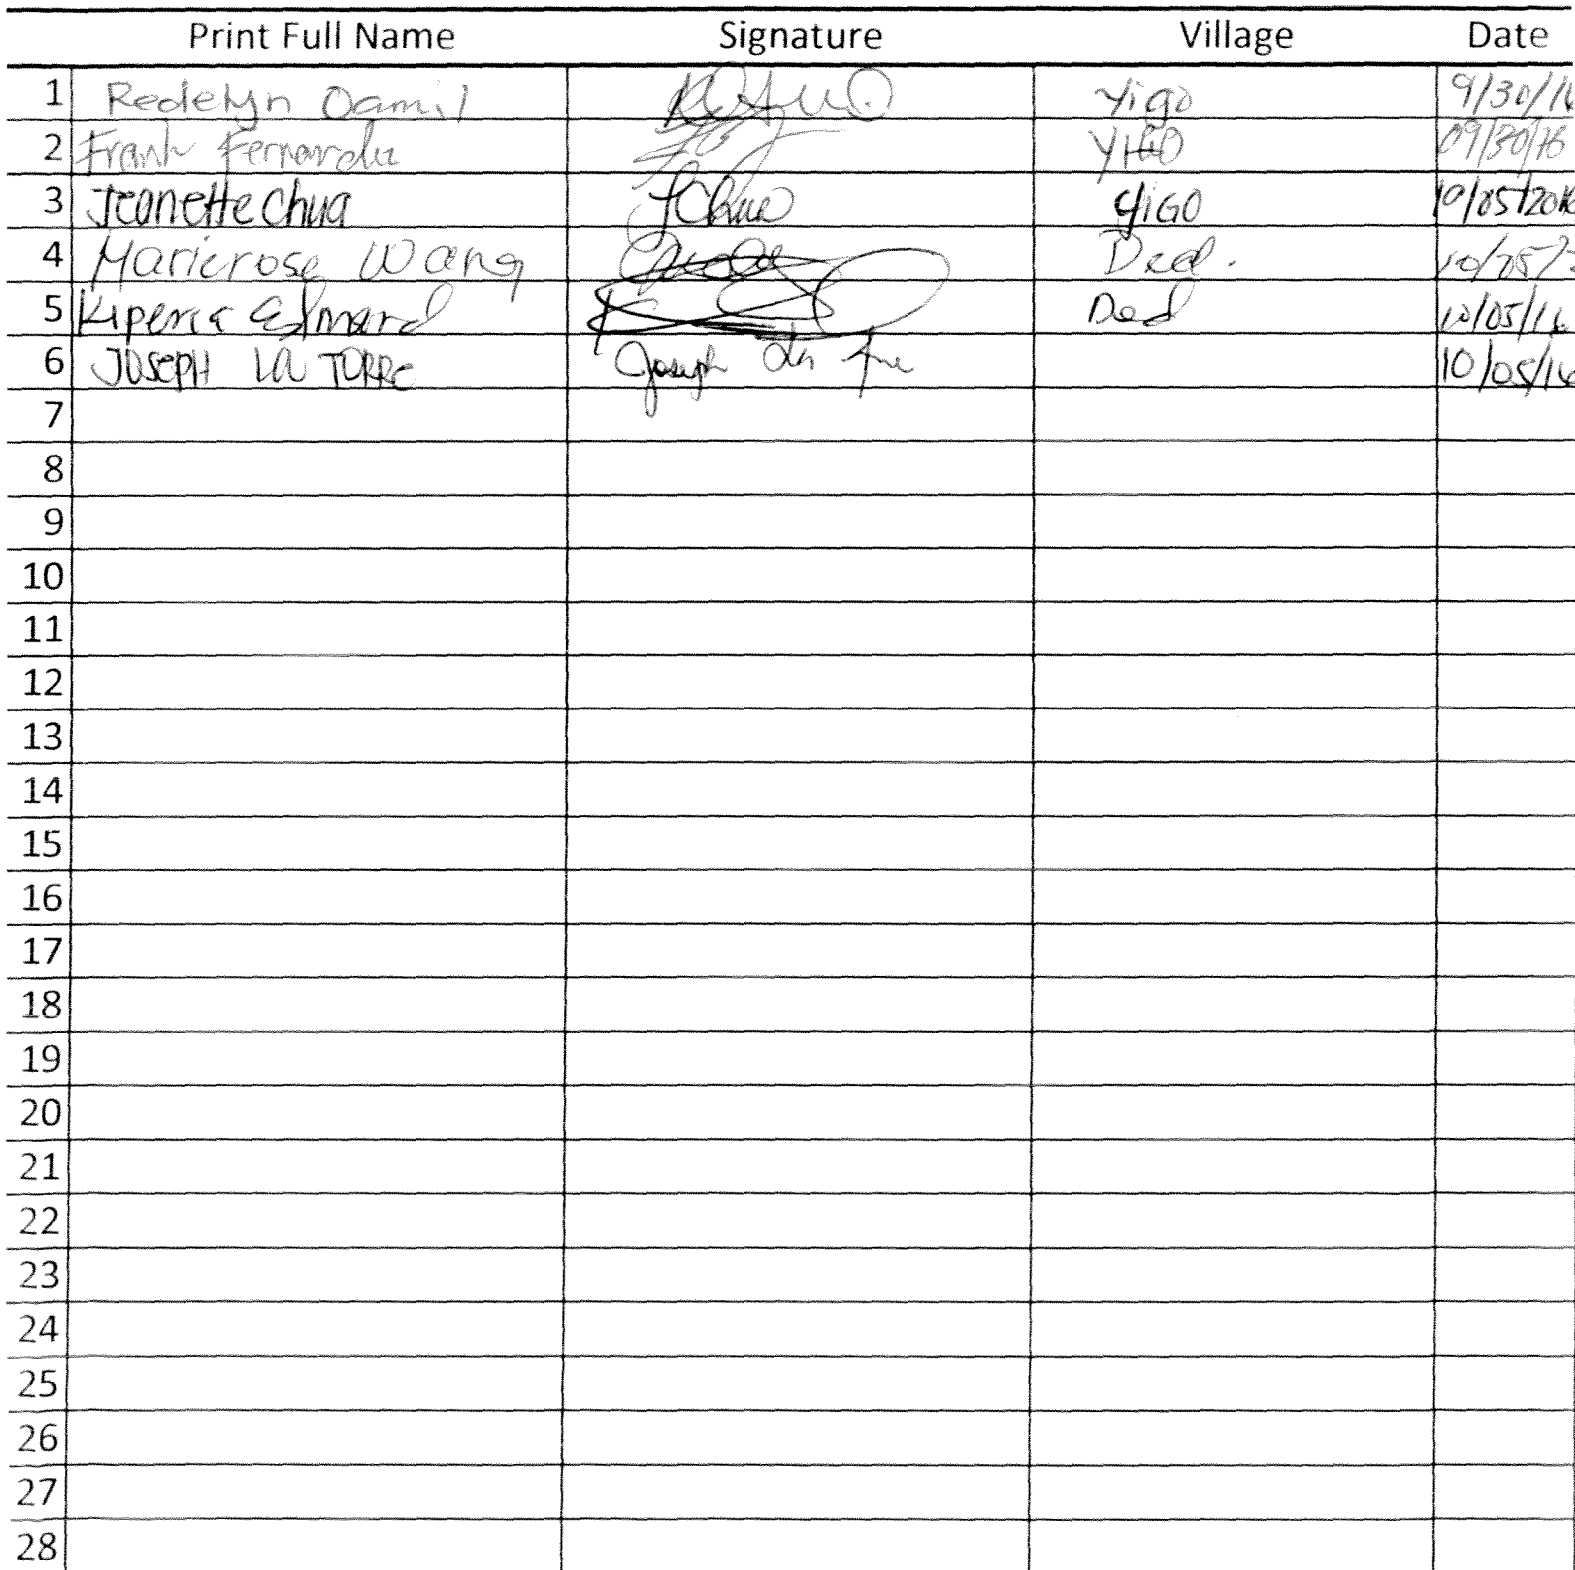 Print Full Name Signature Village Date
1 Redelyn Oamil Yigo 9/30/16
2 Frank Fernandu YIGO 09/30/16
3 Jeanette Chua JChua YIGO 10/05/2016
4 Maricrose Wang Ded.
5 Ded 10/05/16
6 JOSEPH LA TORRE Joseph 10/05/16
7
8
9
10
11
12
13
14
15
16
17
18
19
20
21
22
23
24
25
26
27
28